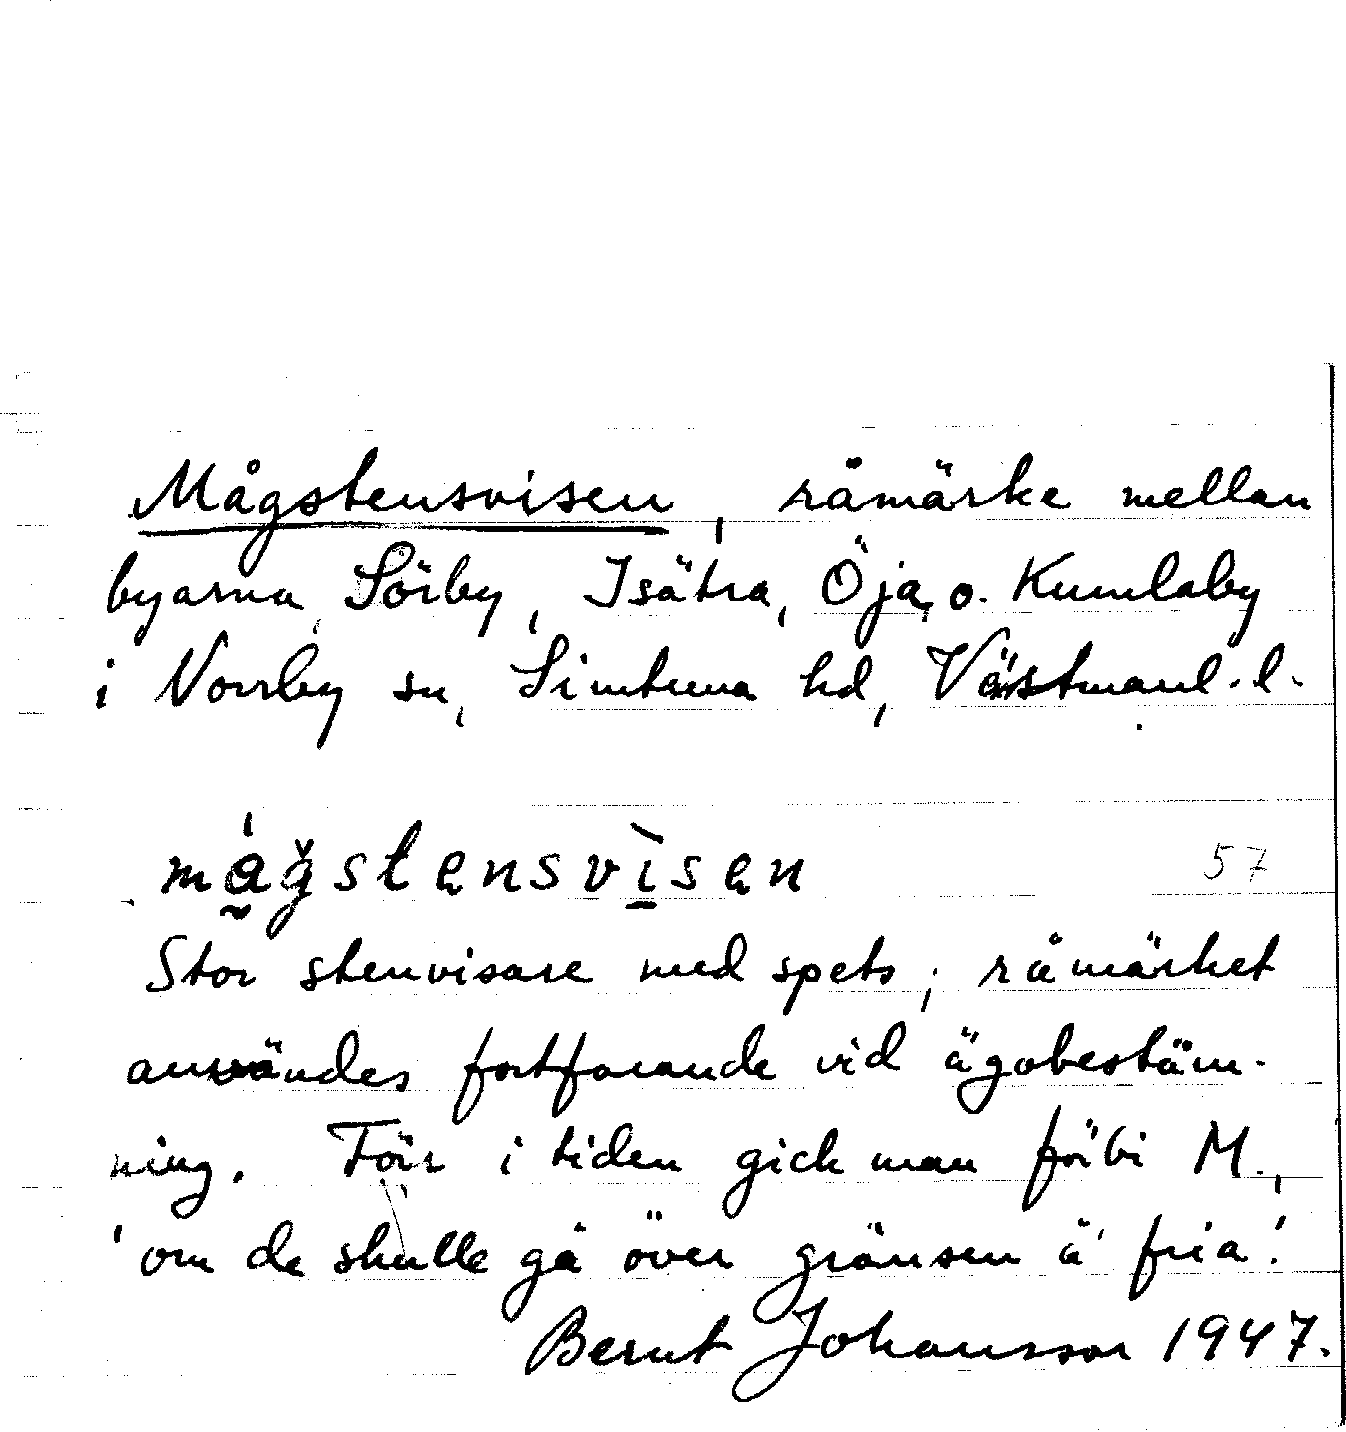 Mågstensvisen, råmärke mellan
byarna Sörby, Isätra, Öja, o. Kumlaby
i Norrby sn, Simtuna hd, Västmanl. l.
mágstensvìsen 57
Stor stenvisare med spets; råmärket
användes fortfarande vid ägobestäm-
ning. Förr i tiden gick man förbi M.,
'om de skulle gå över gränsen å fria'.
Bernt Johansson 1947.